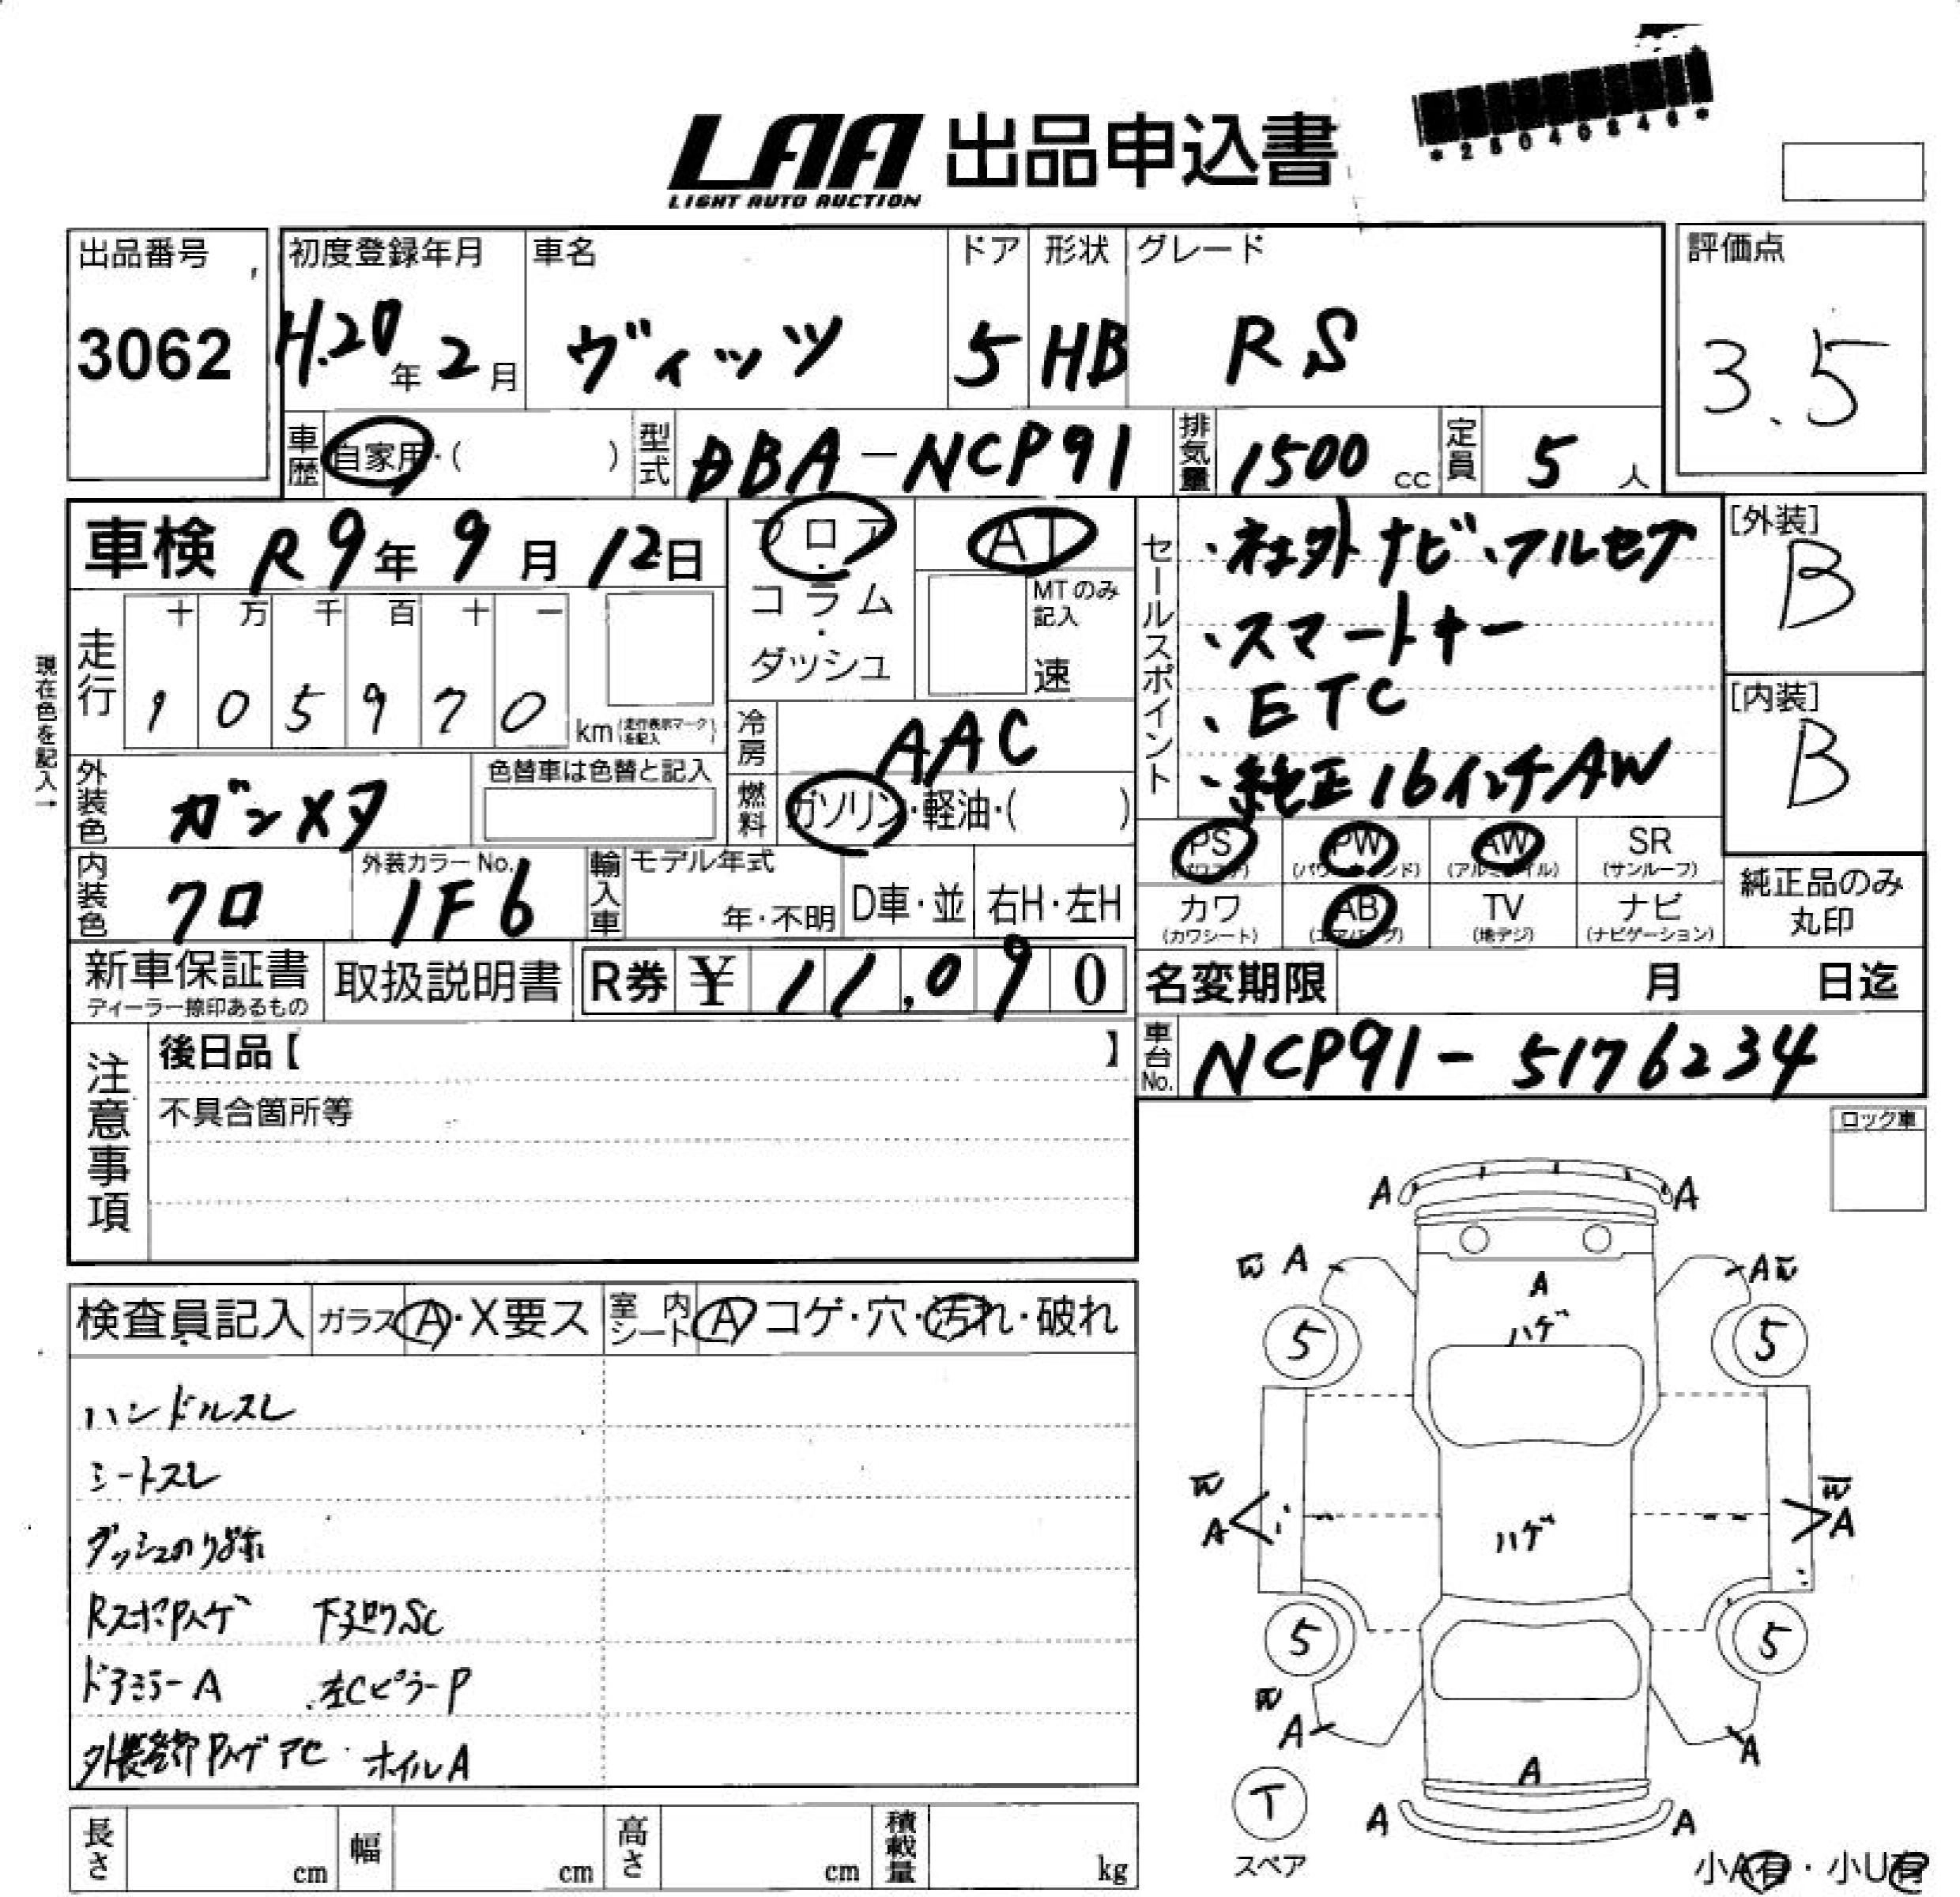 *28040846*
LAA 出品申込書
LIGHT AUTO AUCTION
出品番号 初度登録年月 車名 ドア 形状 グレード 評価点
3062 H.20年2月 ヴィッツ 5 HB RS 3.5
車歴 自家用・( ) 型式 DBA-NCP91 排気量 1500cc 定員 5人
車検 R9年9月12日 フロア・コラム・ダッシュ AT
MTのみ記入 速
セールスポイント
・社外ナビ、フルセグ
・スマートキー
・ETC
・純正16インチAW
[外装] B
[内装] B
現在色を記入→
走行 十 万 千 百 十 一
1 0 5 9 7 0 km (走行表示マークを記入)
冷房 AAC
外装色 ガンメタ 色替車は色替と記入
燃料 ガソリン・軽油・( )
PS(パワステ) PW(パワーウインド) AW(アルミホイル) SR(サンルーフ)
カワ(カワシート) AB(エアバッグ) TV(地デジ) ナビ(ナビゲーション)
純正品のみ丸印
内装色 クロ 外装カラーNo. 1F6 輸入車 モデル年式 年・不明 D車・並 右H・左H
新車保証書 ディーラー捺印あるもの 取扱説明書 R券 ¥ 11,090 名変期限 月 日迄
注意事項 後日品【 】 車台No. NCP91-5176234
不具合箇所等
ロック車
検査員記入 ガラス A・X要ス 室内シート A コゲ・穴・汚れ・破れ
ハンドルスレ
シートスレ
ダッシュのり跡
RスポPハゲ 下廻りSC
ドアミラーA 左CピラーP
外装各部Pハゲ アセ ホイルA
A A
W A A W
A
ハゲ
5 5
W W
A A
ハゲ
5 5
W
A A
A
T
A A
スペア
長さ cm 幅 cm 高さ cm 積載量 kg
小A有・小U有